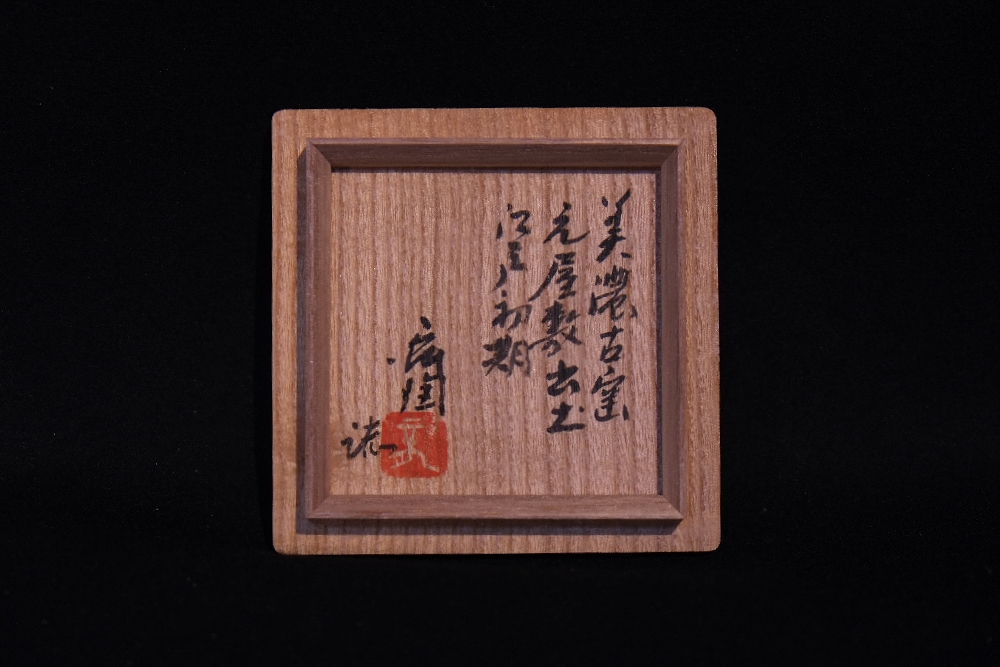 美濃古窯
元屋敷出土
江戸初期
陶
誌